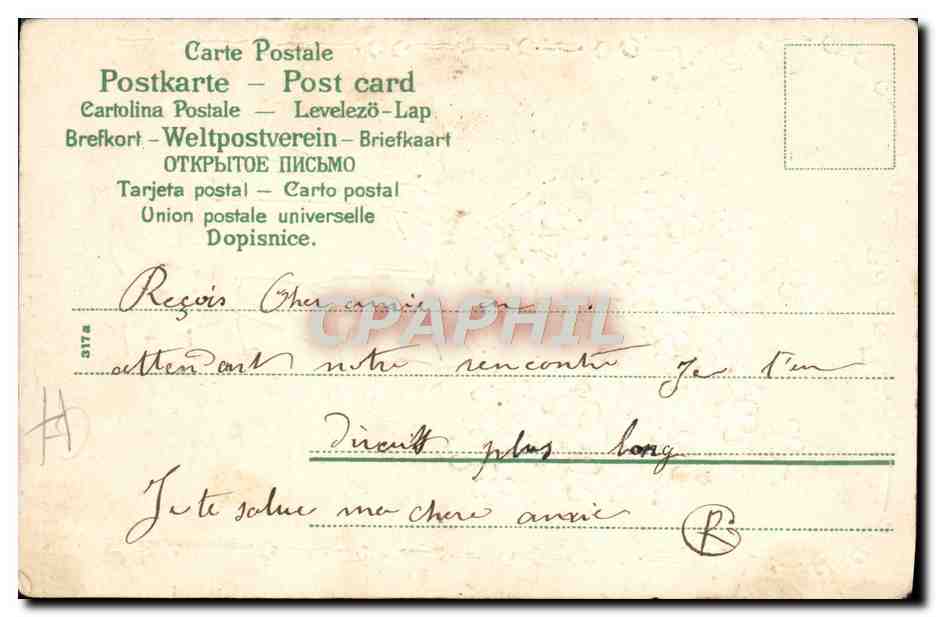 Carte Postale
Postkarte – Post card
Cartolina Postale — Levelezö-Lap
Brefkort – Weltpostverein – Briefkaart
ОТКРЫТОЕ ПИСЬМО
Tarjeta postal — Carto postal
Union postale universelle
Dopisnice.
Reçois Cher amie en
CPAPHIL
317a
attendant notre rencontre Je t'en
plus long
Je te salue ma chere amie
R
H